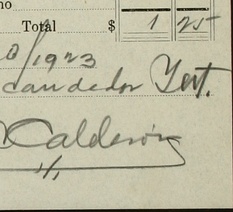 no
Total $ 1 25
0/1923
caudedor Test.
Calderón